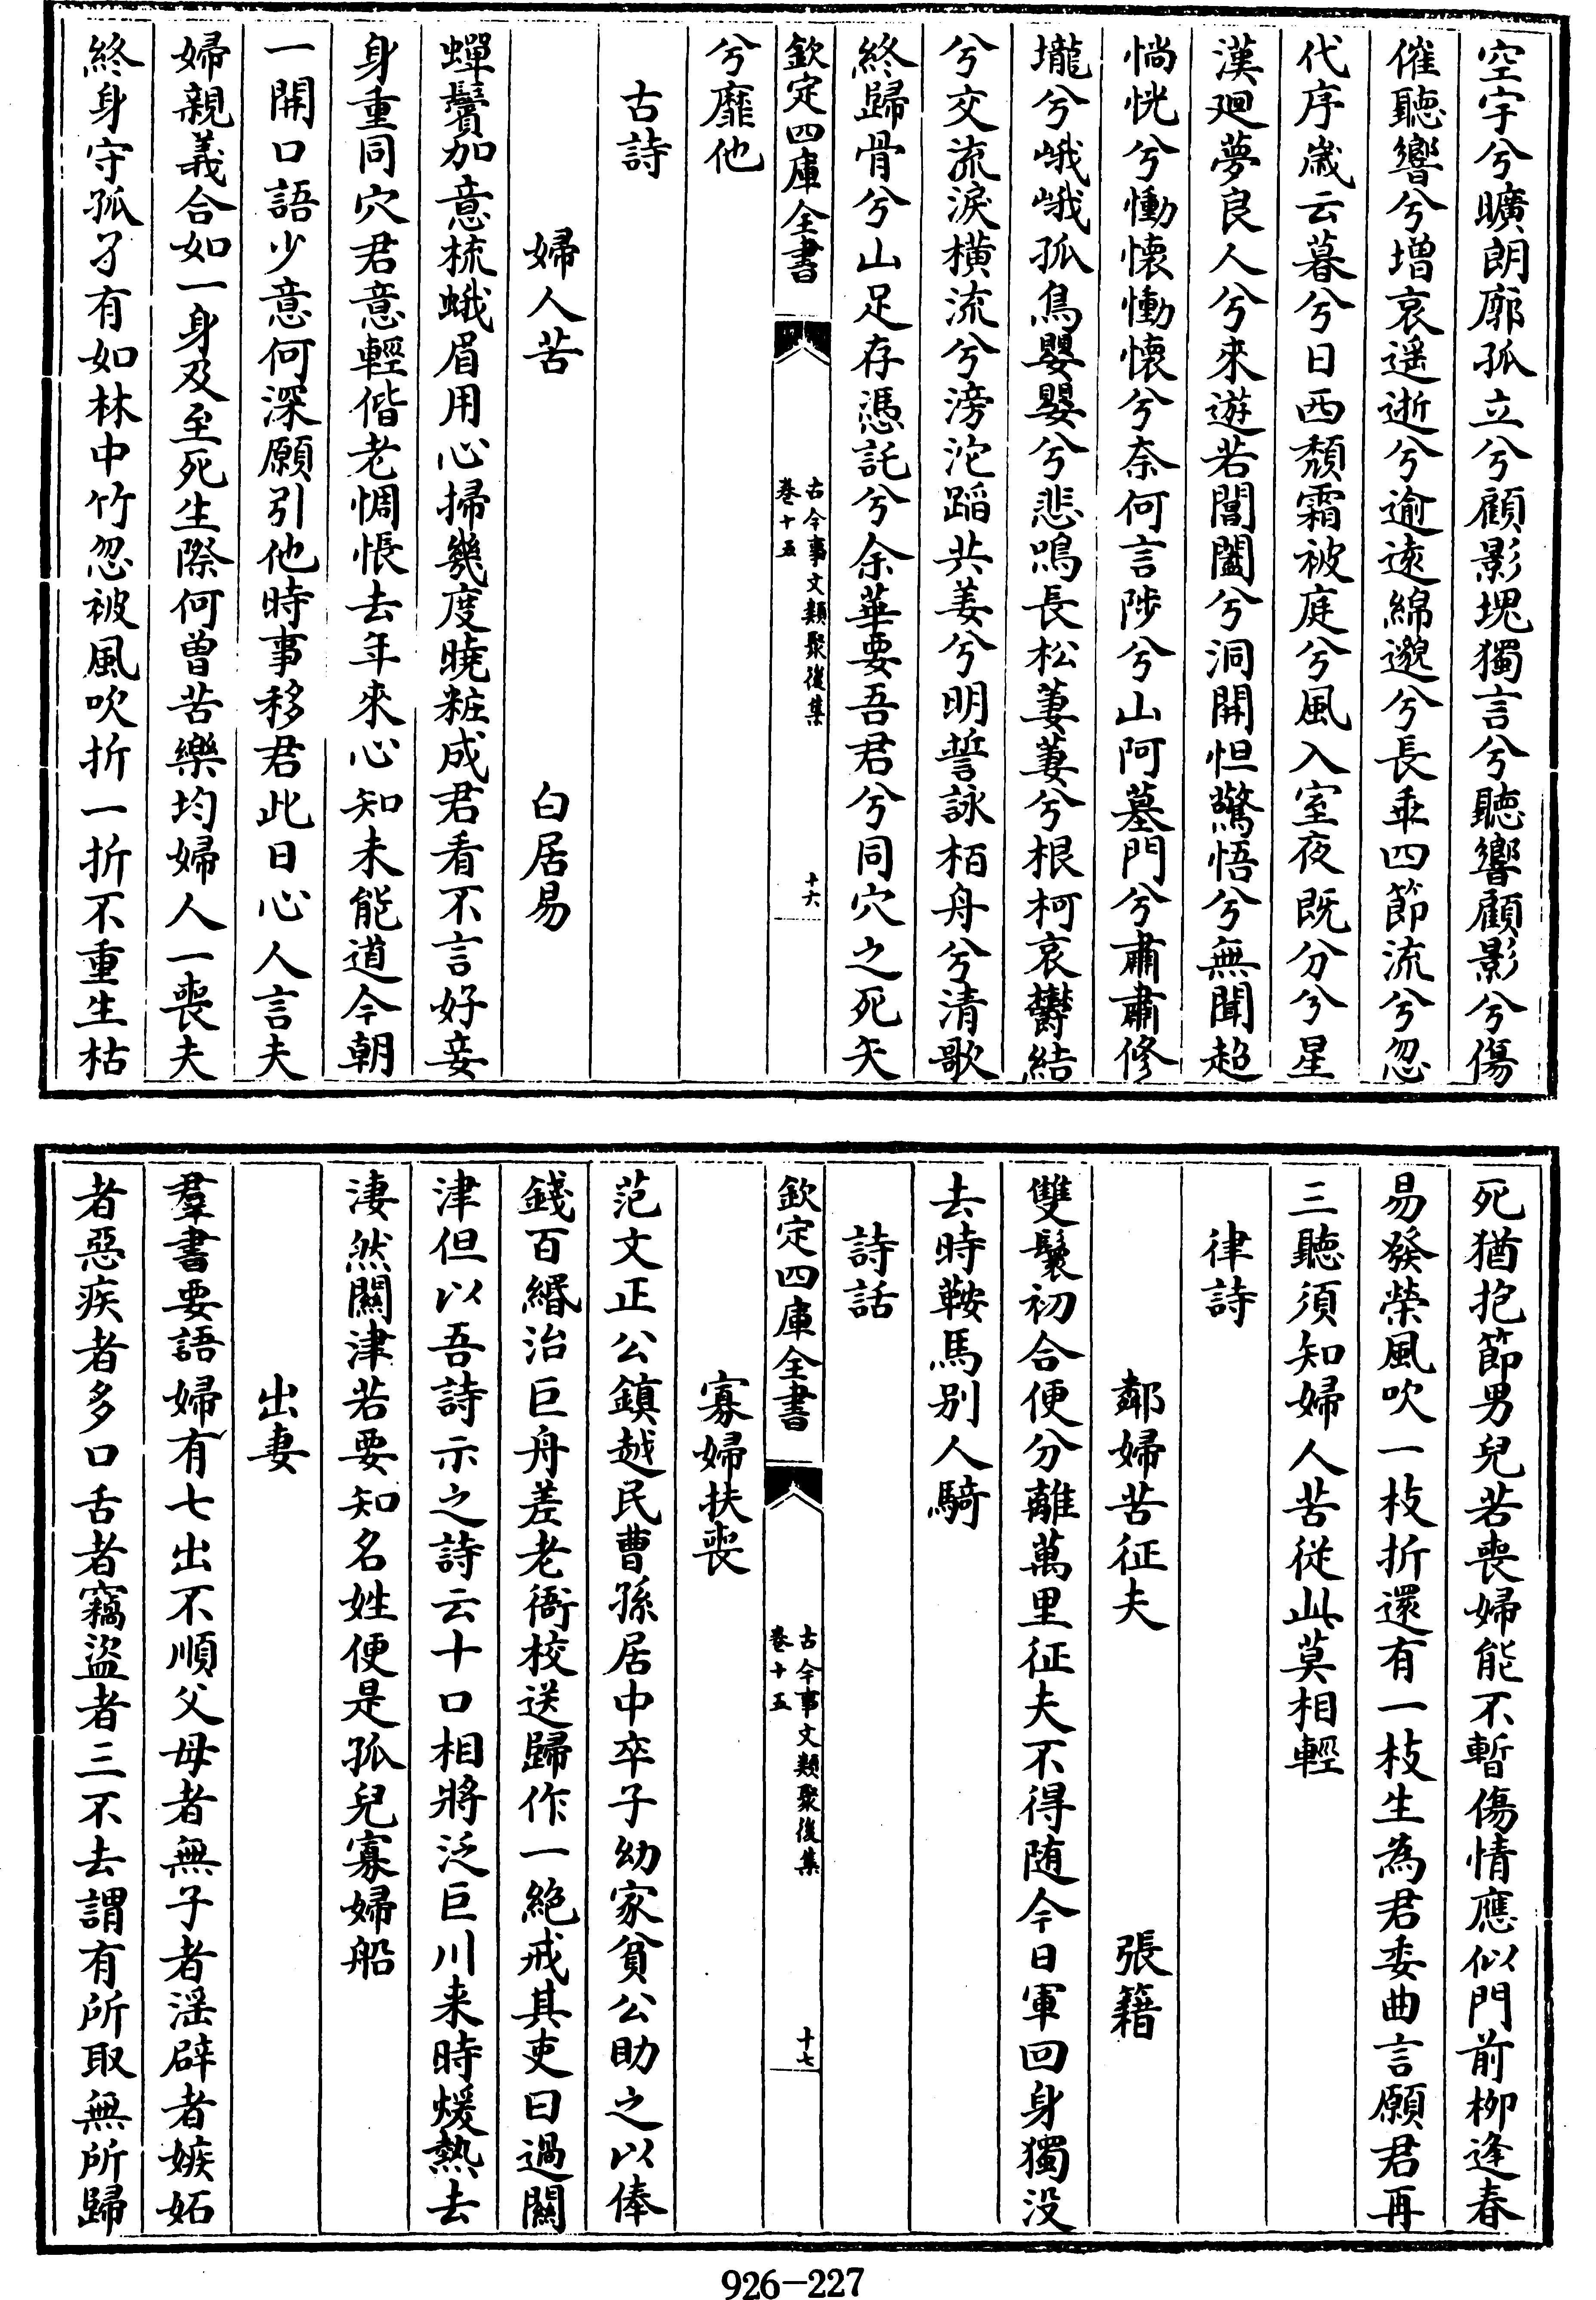 空宇兮曠朗廓孤立兮顧影塊獨言兮聽響顧影兮傷
催聽響兮增哀遥逝兮逾遠綿邈兮長乖四節流兮忽
代序歲云暮兮日西頹霜被庭兮風入室夜既分兮星
漢廻夢良人兮來遊若閶闔兮洞開怛驚悟兮無聞超
惝恍兮慟懷慟懷兮奈何言陟兮山阿墓門兮肅肅修
壠兮峨峨孤鳥嬰嬰兮悲鳴長松萋萋兮根柯哀欝結
兮交流淚橫流兮滂沱蹈共姜兮明誓詠栢舟兮清歌
終歸骨兮山足存憑託兮余華要吾君兮同穴之死矢
欽定四庫全書
古今事文類聚後集
卷十五
十六
兮靡他
古詩
婦人苦 白居易
蟬鬢加意梳蛾眉用心掃幾度曉粧成君看不言好妾
身重同穴君意輕偕老惆悵去年來心知未能道今朝
一開口語少意何深願引他時事移君此日心人言夫
婦親義合如一身及至死生際何曽苦樂均婦人一喪夫
終身守孤孑有如林中竹忽被風吹折一折不重生枯
死猶抱節男兒若喪婦能不暫傷情應似門前柳逢春
易發榮風吹一枝折還有一枝生為君委曲言願君再
三聽須知婦人苦從此莫相輕
律詩
鄰婦苦征夫 張籍
雙鬟初合便分離萬里征夫不得随今日軍回身獨没
去時鞍馬别人騎
詩話
欽定四庫全書
古今事文類聚後集
卷十五
十七
寡婦扶喪
范文正公鎮越民曹孫居中卒子幼家貧公助之以俸
錢百緡治巨舟差老衙校送歸作一絶戒其吏曰過關
津但以吾詩示之詩云十口相將泛巨川来時煖熱去
淒然關津若要知名姓便是孤兒寡婦船
出妻
羣書要語婦有七出不順父母者無子者淫辟者嫉妬
者惡疾者多口舌者竊盗者三不去謂有所取無所歸
926-227